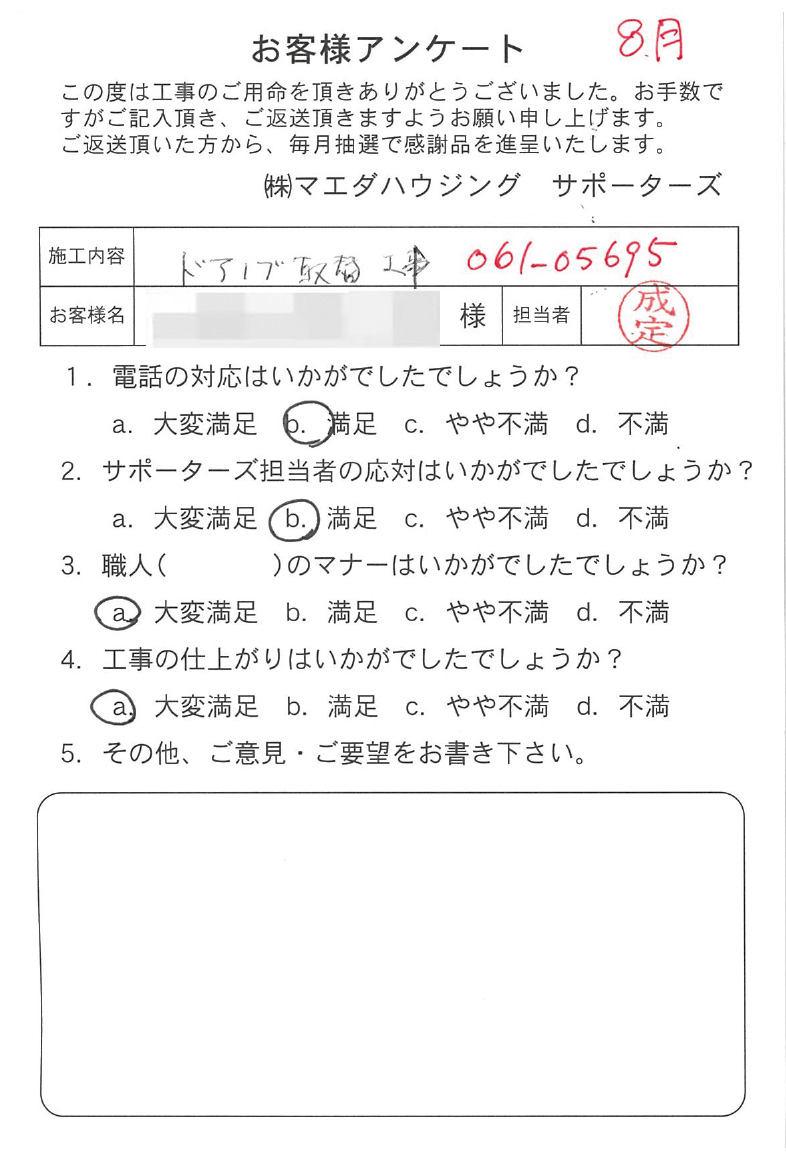 お客様アンケート 8月
この度は工事のご用命を頂きありがとうございました。お手数で
すがご記入頂き、ご返送頂きますようお願い申し上げます。
ご返送頂いた方から、毎月抽選で感謝品を進呈いたします。
㈱マエダハウジング サポーターズ
施工内容 ドアノブ取替工事 061-05695
お客様名 様 担当者 成定
1. 電話の対応はいかがでしたでしょうか？
a. 大変満足 b. 満足 c. やや不満 d. 不満
2. サポーターズ担当者の応対はいかがでしたでしょうか？
a. 大変満足 b. 満足 c. やや不満 d. 不満
3. 職人( )のマナーはいかがでしたでしょうか？
a. 大変満足 b. 満足 c. やや不満 d. 不満
4. 工事の仕上がりはいかがでしたでしょうか？
a. 大変満足 b. 満足 c. やや不満 d. 不満
5. その他、ご意見・ご要望をお書き下さい。